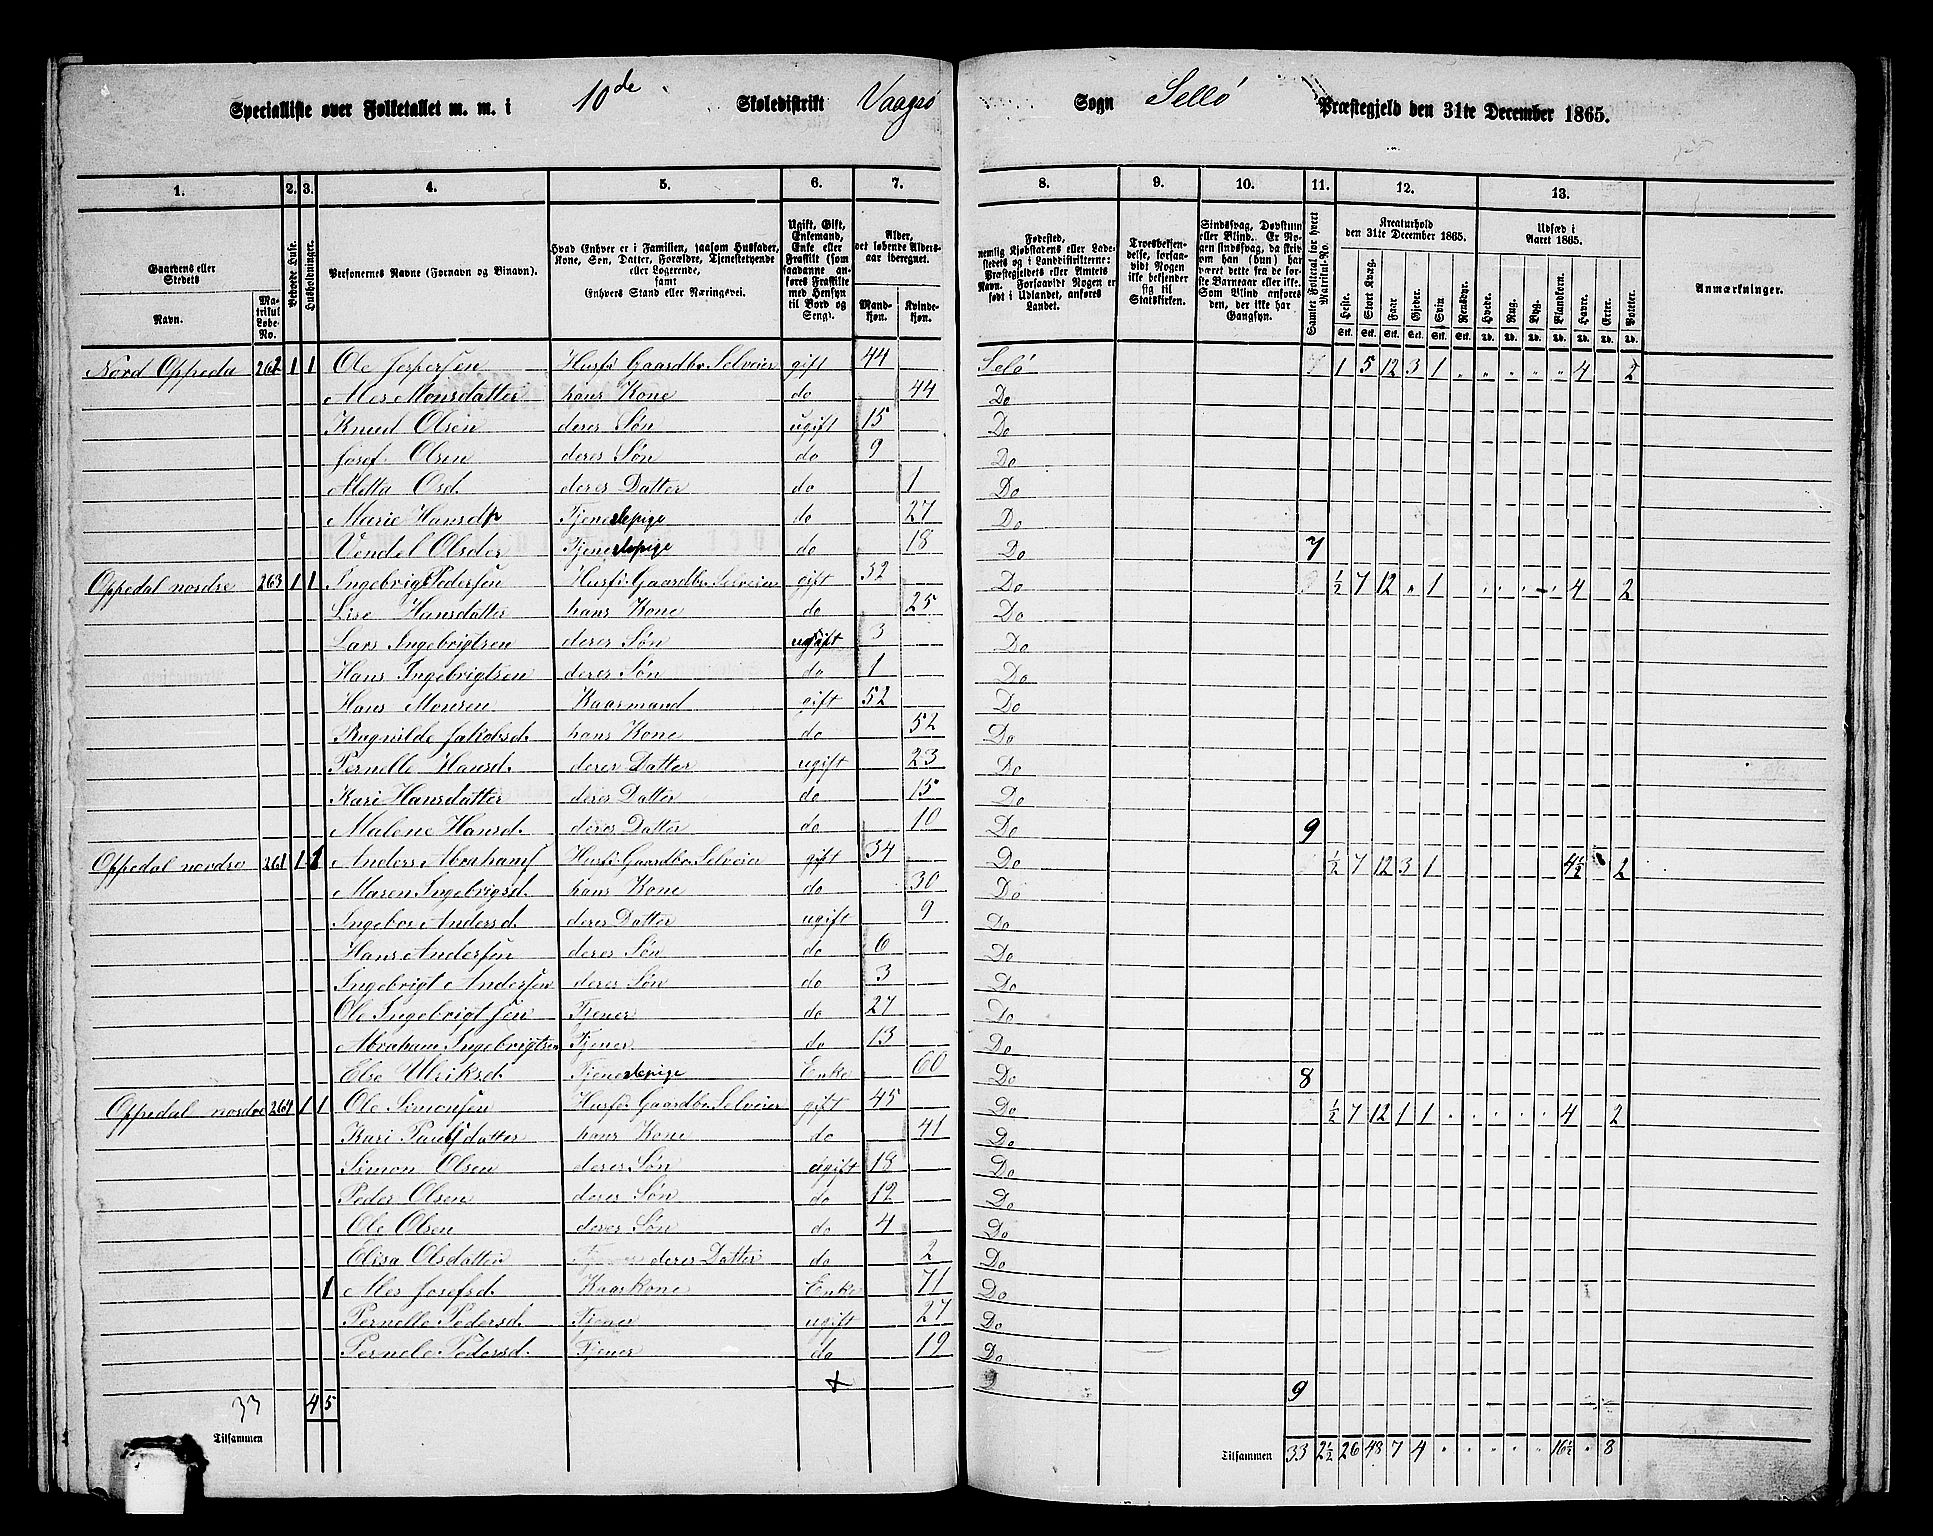 Specialliste over Folketallet m. m. i 10de Skoledistrikt Vaagsø Sogn Sellø Præstegjeld den 31te December 1865.
1. 2. 3. 4. 5. 6. 7. 8. 9. 10. 11. 12. 13.
Gaardens eller Stedets Navn. Matrikul Løbe-No.
Beboede Huse.
Husholdninger.
Personernes Navne (Fornavn og Binavn).
Hvad Enhver er i Familien, saasom Husfader, Kone, Søn, Datter, Forældre, Tjenestetyende eller Logerende, samt Enhvers Stand eller Næringsvei.
Ugift, Gift, Enkemand, Enke eller Fraskilt (som saadanne anføres Fraskilte med Hensyn til Bord og Seng).
Alder, det løbende Aldersaar iberegnet. Mandkøn. Kvindekøn.
Fødested, nemlig Kjøbstadens eller Ladestedets og i Landdistrikterne: Præstegjeldets eller Amtets Navn. Forsaavidt Nogen er født i Udlandet, anføres Landet.
Troesbekjendelse, forsaavidt Nogen ikke bekjender sig til Statskirken.
Sindssvag, Døvstum eller Blind. Er Nogen sindssvag, da skrives om han (hun) har været dette fra de første Barneaar eller ikke. Som Blind anføres den, der ikke har Gangsyn.
Samlet Folketal for hvert Matrikul-No.
Kreaturhold den 31te December 1865. Heste. Stort Kvæg. Faar. Gjeder. Svin. Rensdyr.
Udsæd i Aaret 1865. Hvede. Rug. Byg. Blandkorn. Havre. Erter. Poteter.
Anmærkninger.
Nord Oppeda 262 1 1 Ole Jespersen Husf: Gaardbr Selveier gift 44 Selø 7 1 5 12 3 1 4 2
Ales Monsdatter hans Kone do 44 Do
Knud Olsen deres Søn ugift 15 Do
Josef Olsen deres Søn do 9 Do
Metta Osd. deres Datter do 1 Do
Marie Hansdtr Tjenestepige do 27 Do
Vendel Olsder Tjenestepige do 18 Do 7
Oppedal nordre 263 1 1 Ingebrigt Pedersen Husf: Gaardbr. Selveier gift 52 Do ½ 7 12 1 4 2
Lise Hansdatter hans Kone do 25 Do
Lars Ingebrigtsen deres Søn ugift 3 Do
Hans Ingebrigtsen deres Søn do 1 Do
Hans Monsen Kaarmand gift 52 Do
Ragnilde Jakobsd. hans Kone do 52 Do
Pernelle Hansd. deres Datter ugift 23 Do
Kari Hansdatter deres Datter do 15 Do
Malene Hansd. deres Datter do 10 Do 9
Oppedal nordre 261 1 1 Anders Abrahams Husf: Gaardbr Selveier gift 34 Do ½ 7 12 3 1 4½ 2
Maren Ingebrigsd. hans Kone do 30 Do
Ingebor Andersd. deres Datter ugift 9 Do
Hans Andersen deres Søn do 6 Do
Ingebrigt Andersen deres Søn do 3 Do
Ole Ingebrigtsen Tjener do 27 Do
Abraham Ingebrigtsen Tjener do 13 Do
Else Ulriksd Tjenestepige Enke 60 Do 8
Oppedal nordre 264 1 1 Ole Simonsen Husf: Gaardbr Selveier gift 45 Do ½ 7 12 1 1 4 2
Kari Paulsdatter hans Kone do 41 Do
Simon Olsen deres Søn ugift 18 Do
Peder Olsen deres Søn do 12 Do
Ole Olsen deres Søn do 4 Do
Elisa Olsdatter deres Datter do 2 Do
1 Ales Josefsd. Kaarkone Enke 71 Do
Pernelle Pedersd. Tjener ugift 27 Do
Pernele Pedersd. Tjener do 19 Do
9
33 4 5
Tilsammen Tilsammen 33 2½ 26 48 7 4 16½ 8